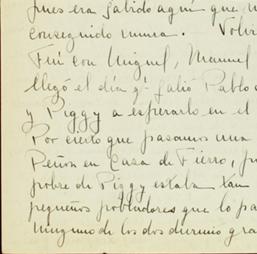 pues era sabido aquí que n
conseguido nunca. Volvi
Fuí con Miguel, Manuel
llegó el día 9. Salió Pablo
y Piggy a esperarlo en el
Por cierto que pasamos una
Peñon en Casa de Fierro, pu
pobre de Piggy estaba tan
pequeños pobladores que lo pa
Ninguno de los dos durmió gra